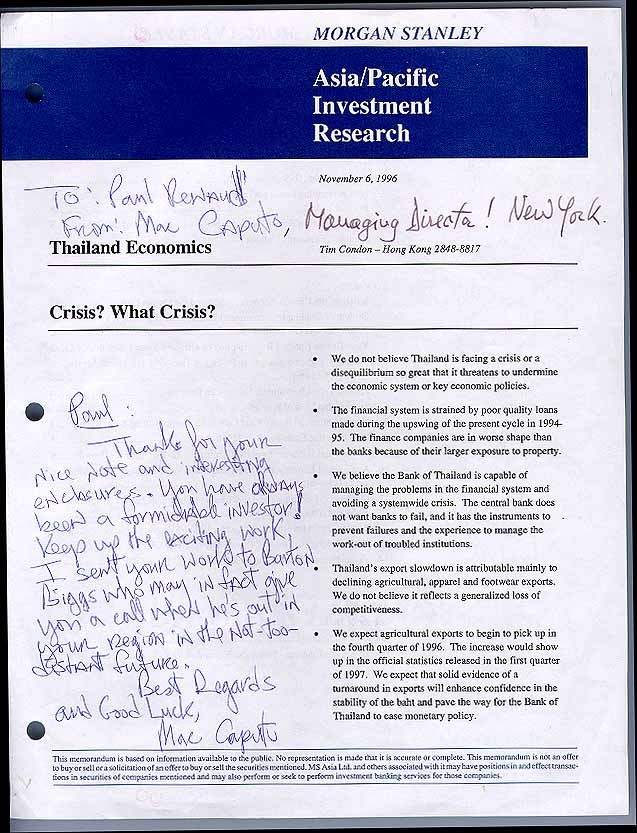 MORGAN STANLEY
Asia/Pacific
Investment
Research
November 6, 1996
To: Paul Renaud
From: Mac Caputo, Managing Director! New York.
Thailand Economics
Tim Condon – Hong Kong 2848-8817
Crisis? What Crisis?
• We do not believe Thailand is facing a crisis or a
disequilibrium so great that it threatens to undermine
the economic system or key economic policies.
• The financial system is strained by poor quality loans
made during the upswing of the present cycle in 1994-
95. The finance companies are in worse shape than
the banks because of their larger exposure to property.
• We believe the Bank of Thailand is capable of
managing the problems in the financial system and
avoiding a systemwide crisis. The central bank does
not want banks to fail, and it has the instruments to
prevent failures and the experience to manage the
work-out of troubled institutions.
• Thailand's export slowdown is attributable mainly to
declining agricultural, apparel and footwear exports.
We do not believe it reflects a generalized loss of
competitiveness.
• We expect agricultural exports to begin to pick up in
the fourth quarter of 1996. The increase would show
up in the official statistics released in the first quarter
of 1997. We expect that solid evidence of a
turnaround in exports will enhance confidence in the
stability of the baht and pave the way for the Bank of
Thailand to ease monetary policy.
Paul:
Thanks for your
nice note and interesting
enclosures. You have always
been a formidable investor!
Keep up the exciting work,
I sent your work to Barton
Biggs who may in fact give
you a call when he's out in
your region in the not-too-
distant future.
Best Regards
and Good Luck,
Mac Caputo
This memorandum is based on information available to the public. No representation is made that it is accurate or complete. This memorandum is not an offer
to buy or sell or a solicitation of an offer to buy or sell the securities mentioned. MS Asia Ltd. and others associated with it may have positions in and effect transac-
tions in securities of companies mentioned and may also perform or seek to perform investment banking services for those companies.